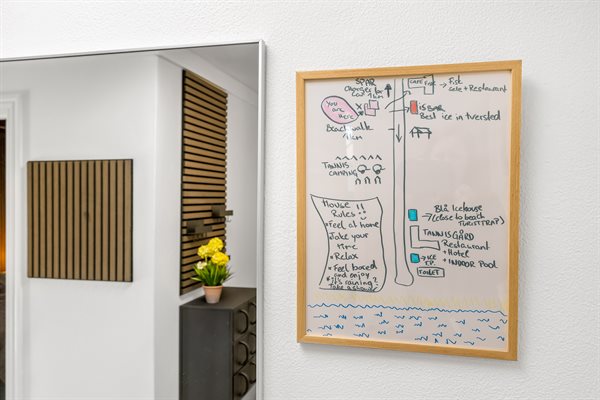 SPAR
Charger for
car 1km
CAFE
→ Fisk
cafe + Restaurant
You
are
Here
X
ISBAR
Best ice in tversted
Beach walk
1km
TANNIS
CAMPING
House
Rules
* Feel at home
* Take your
time
* Relax
* Feel bored
and enjoy
* it's raining?
Take a shower
Blå Icehouse
(close to beach
TURISTTRAP)
TANNISGÅRD
Restaurant
+ Hotel
+ INDOOR POOL
→ ICE
TOILET